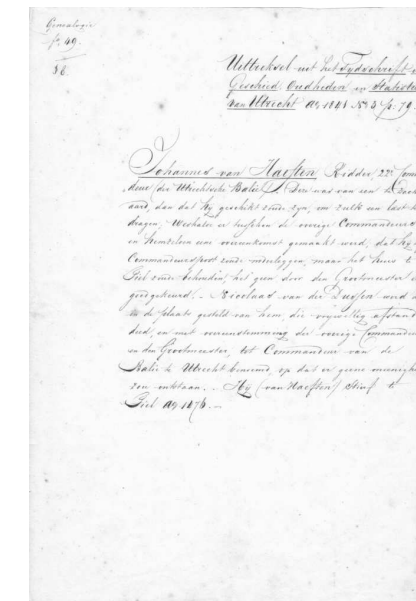 Genealogie
p. 49.
58.
Uittreksel uit het Tydschrift
Geschied. Oudheden en Statist
van Utrecht Ao 1841 No 3 p. 79.
Johannes van Haeften Ridder, 22e
deur (der Utrechtsche Balie). Deze was van een te
aard, dan dat hy geschikt zoude zyn, om zulk een last te
dragen, Weshalve er tusschen de overige Commandeurs
en hemzelven eene overeenkomst gemaakt werd, dat hy
Commandeurspost zoude nederleggen, maar het huis te
Tiel zoude behouden, het geen door den Grootmeester
goedgekeurd. - Nicolaas van der Dussen werd
in de plaats gesteld van hem, die vrywillig afstand
deed, en met overeenstemming der overige Commandeurs
en den Grootmeester, tot Commandeur van de
Balie te Utrecht benoemd, op dat er geene oneenigh
zou ontstaan. - Hy (van Haeften) stierf te
Tiel Ao 1476. -